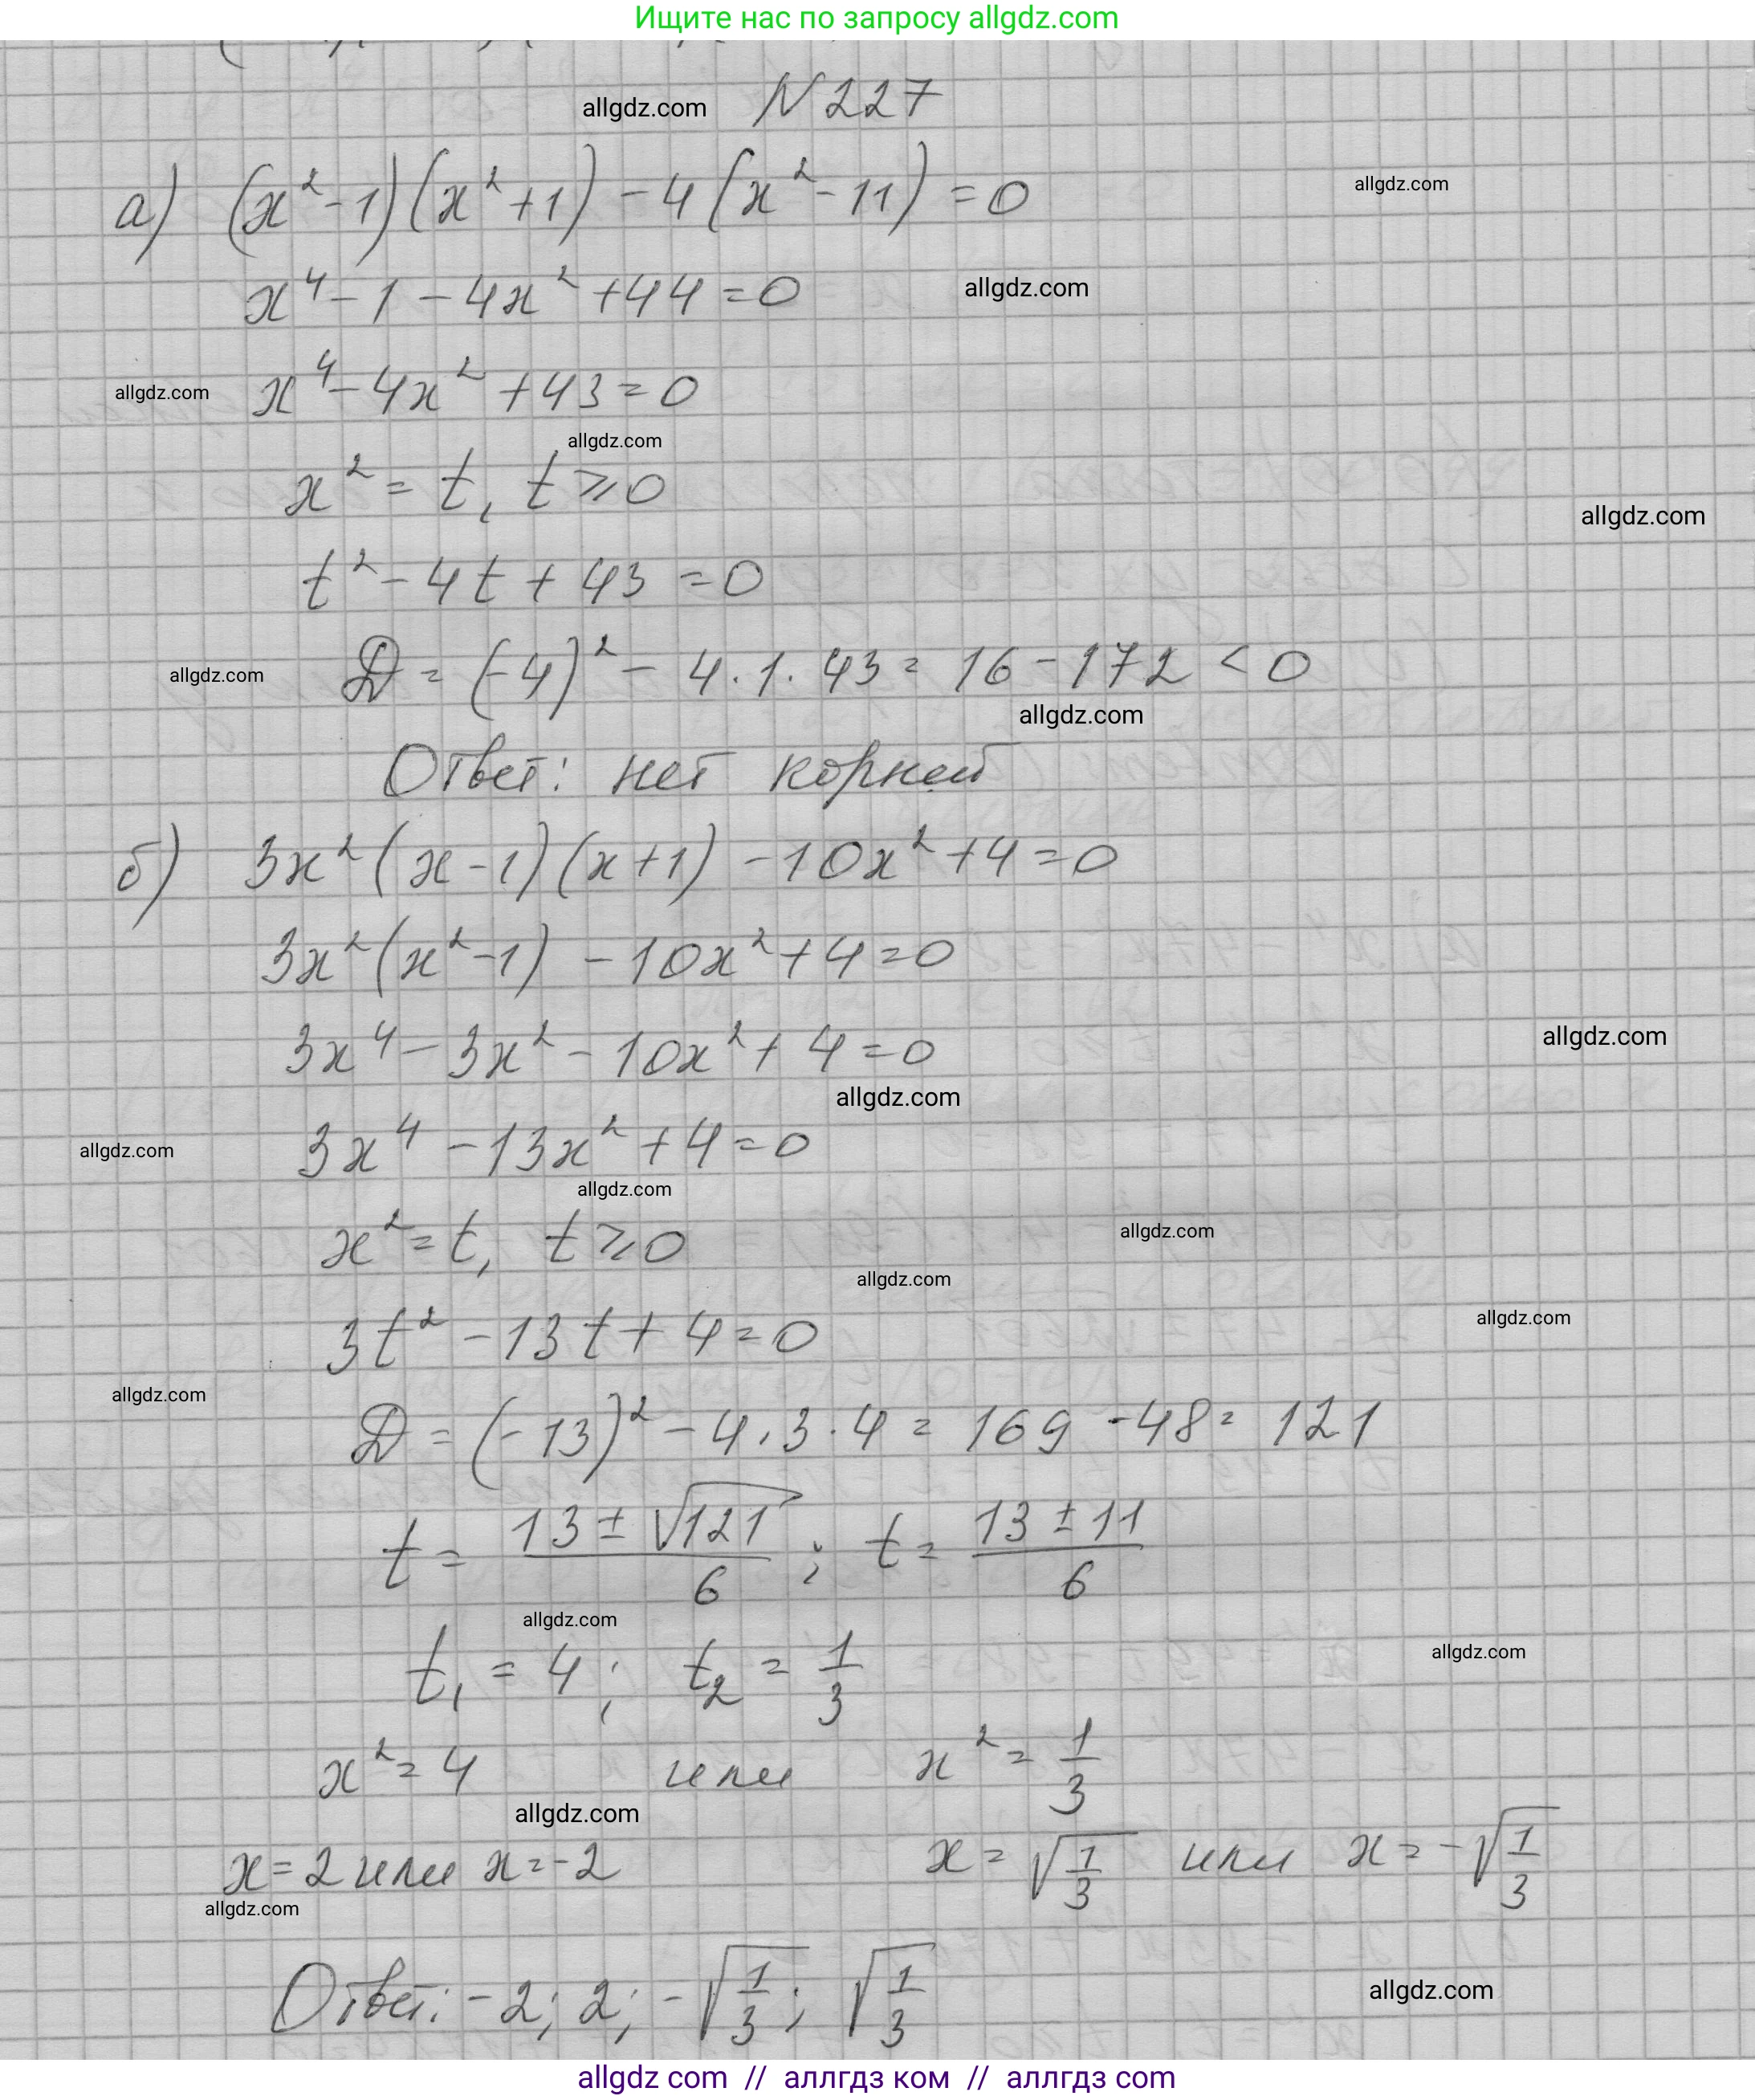 Ищите нас по запросу allgdz.com
allgdz.com N 227
а) (x² - 1)(x² + 1) - 4(x² - 11) = 0
allgdz.com
x⁴ - 1 - 4x² + 44 = 0
allgdz.com
allgdz.com
x⁴ - 4x² + 43 = 0
allgdz.com
x² = t, t ⩾ 0
allgdz.com
t² - 4t + 43 = 0
allgdz.com
D = (-4)² - 4 · 1 · 43 = 16 - 172 < 0
allgdz.com
Ответ: нет корней
б) 3x²(x - 1)(x + 1) - 10x² + 4 = 0
3x²(x² - 1) - 10x² + 4 = 0
3x⁴ - 3x² - 10x² + 4 = 0
allgdz.com
allgdz.com
allgdz.com
3x⁴ - 13x² + 4 = 0
allgdz.com
x² = t, t ⩾ 0
allgdz.com
allgdz.com
allgdz.com
3t² - 13t + 4 = 0
allgdz.com
D = (-13)² - 4 · 3 · 4 = 169 - 48 = 121
t = (13 ± √121)/6 ; t = (13 ± 11)/6
allgdz.com
t₁ = 4 ; t₂ = 1/3
allgdz.com
x² = 4 или x² = 1/3
allgdz.com
x = 2 или x = -2 x = √(1/3) или x = -√(1/3)
allgdz.com
Ответ: -2; 2; -√(1/3); √(1/3)
allgdz.com
allgdz com // аллгдз ком // аллгдз com